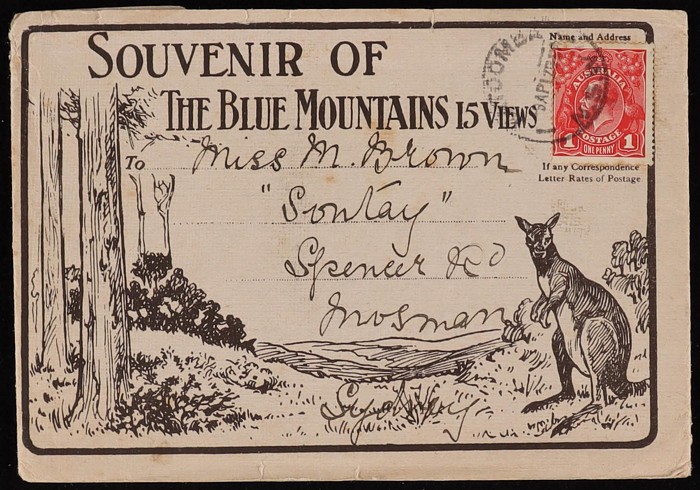 Name and Address
SOUVENIR OF
THE BLUE MOUNTAINS 15 VIEWS
AUSTRALIA
POSTAGE
1 ONE PENNY 1
If any Correspondence
Letter Rates of Postage
To Miss M. Brown
"Sontay"
Spencer Rd
Mosman
Sydney